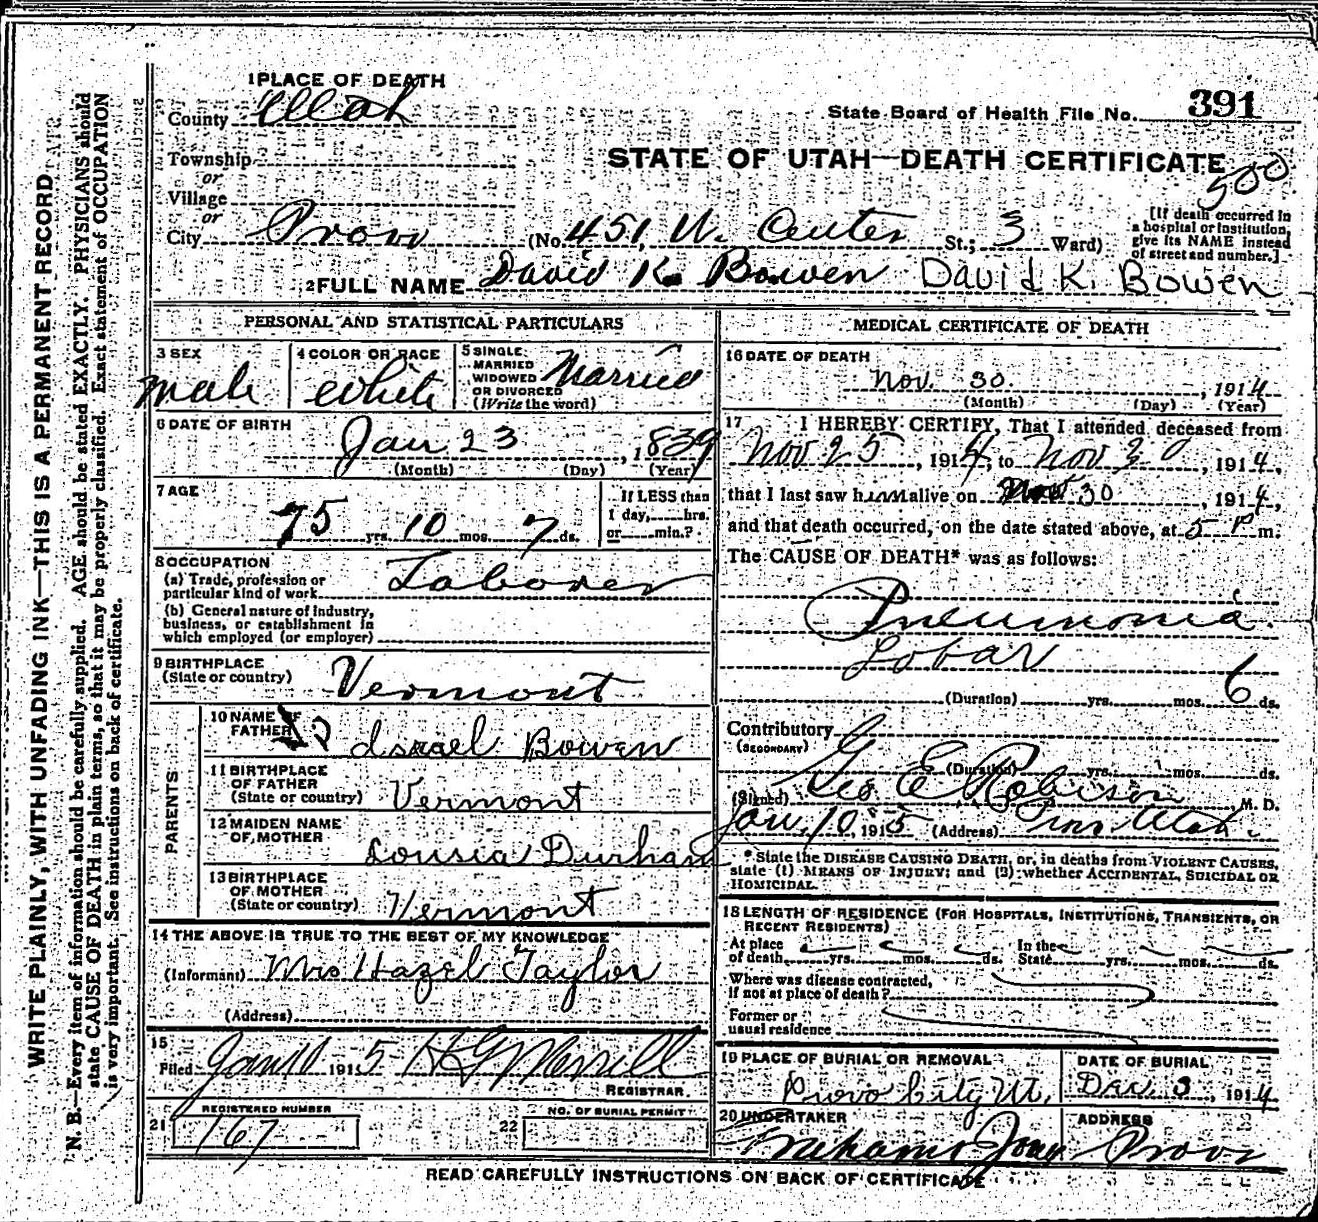 1 PLACE OF DEATH
County Utah
State Board of Health File No. 391
Township
or
STATE OF UTAH—DEATH CERTIFICATE
500
Village
or
City Provo (No. 451, W. Center St.; 3 Ward)
[If death occurred in
a hospital or institution,
give its NAME instead
of street and number.]
2 FULL NAME David K. Bowen David K. Bowen
PERSONAL AND STATISTICAL PARTICULARS
3 SEX
male
4 COLOR OR RACE
White
5 SINGLE
MARRIED
WIDOWED
OR DIVORCED
(Write the word)
Married
6 DATE OF BIRTH
Jan 23, 1839
(Month) (Day) (Year)
7 AGE
75 yrs. 10 mos. 7 ds.
If LESS than
1 day, hrs.
or min.?
8 OCCUPATION
(a) Trade, profession or
particular kind of work Laborer
(b) General nature of industry,
business, or establishment in
which employed (or employer)
9 BIRTHPLACE
(State or country) Vermont
PARENTS
10 NAME OF
FATHER Israel Bowen
11 BIRTHPLACE
OF FATHER
(State or country) Vermont
12 MAIDEN NAME
OF MOTHER
Lousia Durham
13 BIRTHPLACE
OF MOTHER
(State or country) Vermont
14 THE ABOVE IS TRUE TO THE BEST OF MY KNOWLEDGE
(Informant) Mrs Hazel Taylor
(Address)
15
Filed Jan 10 1915 H G Merrill
REGISTRAR.
21 REGISTERED NUMBER
167
22 NO. OF BURIAL PERMIT
MEDICAL CERTIFICATE OF DEATH
16 DATE OF DEATH
Nov. 30, 1914
(Month) (Day) (Year)
17 I HEREBY CERTIFY, That I attended deceased from
Nov 25, 1914, to Nov 30, 1914,
that I last saw him alive on Nov 30 1914,
and that death occurred, on the date stated above, at 5 P m.
The CAUSE OF DEATH* was as follows:
Pneumonia
Lobar
(Duration) yrs. mos. 6 ds.
Contributory
(SECONDARY)
(Duration) yrs. mos. ds.
(Signed) Geo E Robison M. D.
Jan, 10, 1915 (Address) Provo Utah.
* State the DISEASE CAUSING DEATH, or, in deaths from VIOLENT CAUSES,
state (1) MEANS OF INJURY; and (2) whether ACCIDENTAL, SUICIDAL OR
HOMICIDAL.
18 LENGTH OF RESIDENCE (FOR HOSPITALS, INSTITUTIONS, TRANSIENTS, OR
RECENT RESIDENTS)
At place
of death yrs. mos. ds.
In the
State yrs. mos. ds.
Where was disease contracted,
if not at place of death?
Former or
usual residence
19 PLACE OF BURIAL OR REMOVAL
Provo City Ut.
DATE OF BURIAL
Dec. 3, 1914
20 UNDERTAKER
ADDRESS
Provo
READ CAREFULLY INSTRUCTIONS ON BACK OF CERTIFICATE
WRITE PLAINLY, WITH UNFADING INK—THIS IS A PERMANENT RECORD
N. B.—Every item of information should be carefully supplied. AGE should be stated EXACTLY. PHYSICIANS should
state CAUSE OF DEATH in plain terms, so that it may be properly classified. Exact statement of OCCUPATION
is very important. See instructions on back of certificate.